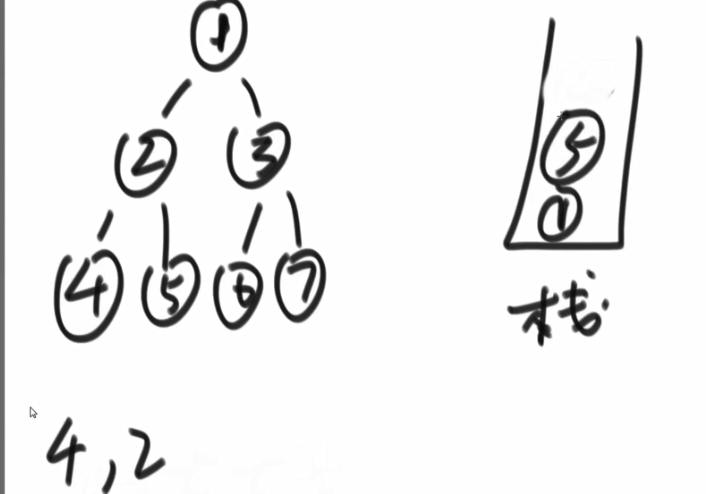 1
2 3
5
4 5 6 7
1
栈
4,2